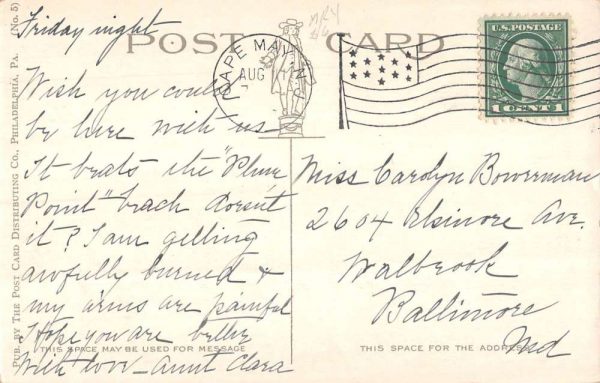 Friday night
POST CARD
CAPE MAY, N.J.
AUG
U.S. POSTAGE
1 CENT 1
Wish you could
be here with us
It beats the "Plum
Point" beach doesn't
it? I am getting
awfully burned &
my arms are painful
Hope you are better
With love - Aunt Clara
Miss Carolyn Bowerman
2604 Elsinore Ave.
Walbrook
Baltimore
Md
THIS SPACE MAY BE USED FOR MESSAGE
THIS SPACE FOR THE ADDRESS
PUB. BY THE POST CARD DISTRIBUTING CO., PHILADELPHIA, PA. (No. 5)